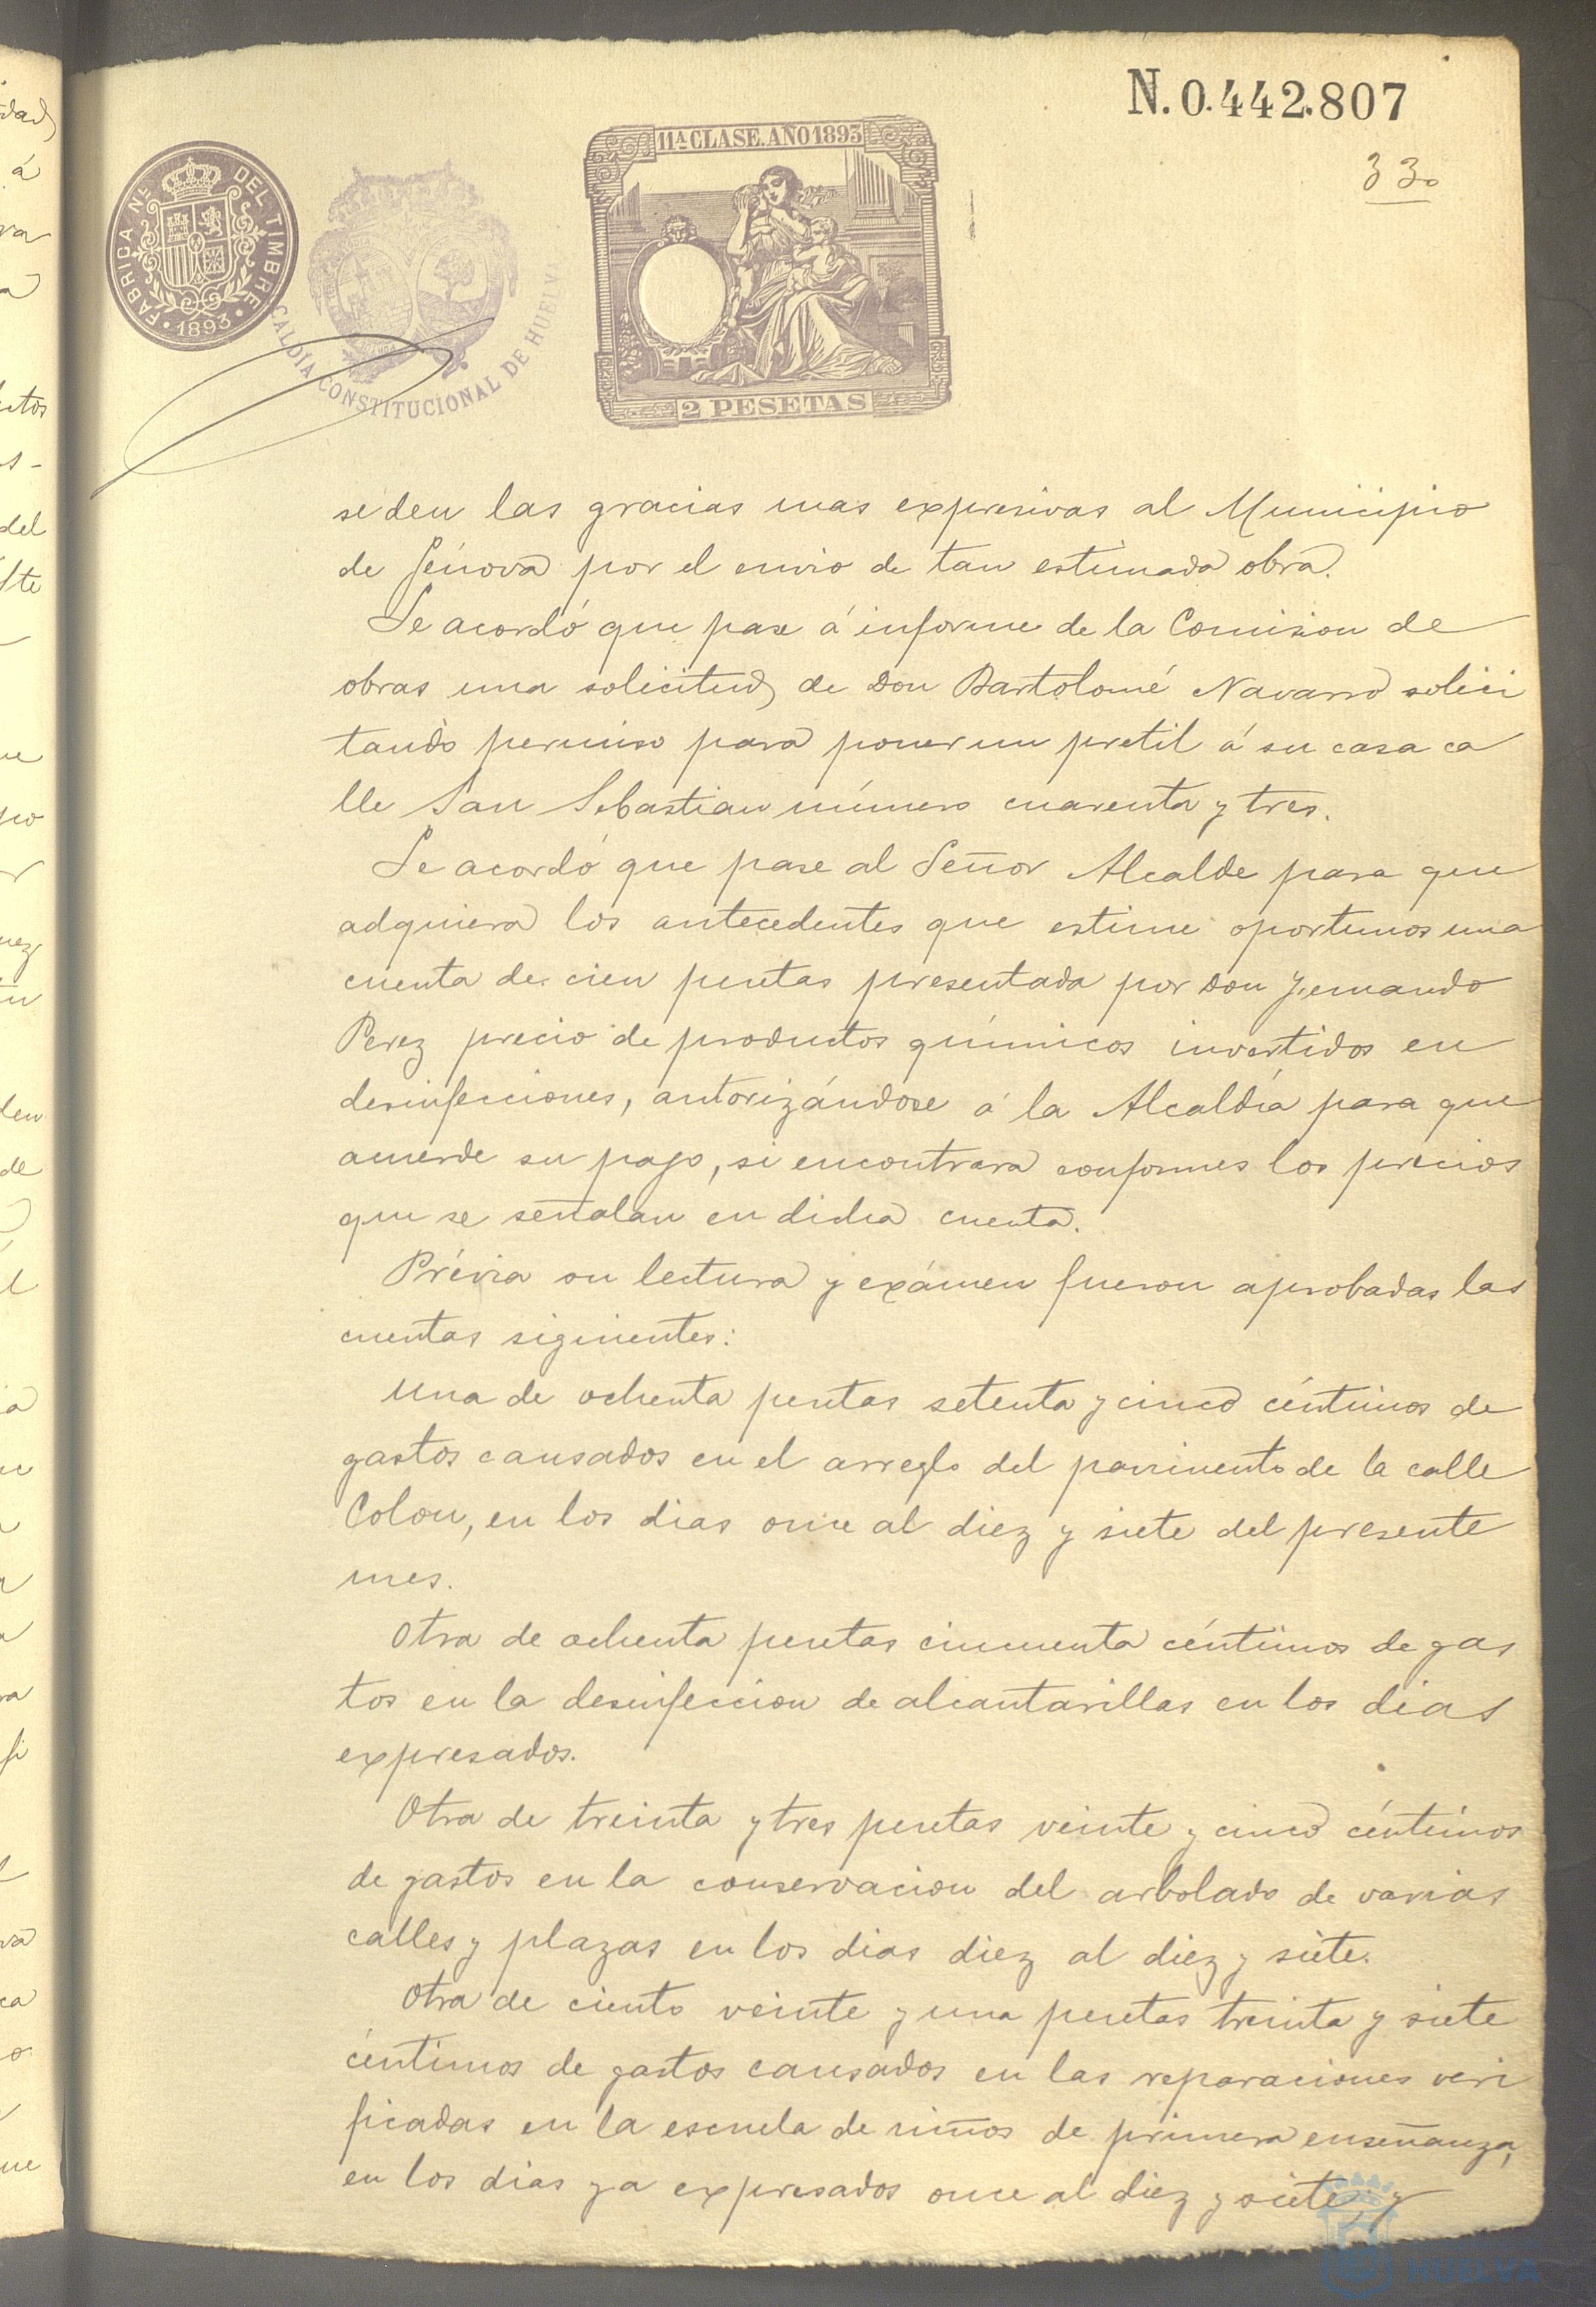 N.0.442.807
33
FÁBRICA NL. DEL TIMBRE
1893
ALCALDÍA CONSTITUCIONAL DE HUELV
11ª CLASE.AÑO1893
2 PESETAS
se den las gracias mas expresivas al Municipio
de Génova por el envio de tan estimada obra.
Se acordó que pase á informe de la Comision de
obras una solicitud de Don Bartolomé Navarro solici
tando permiso para poner un pretil á su casa ca
lle San Sebastian número cuarenta y tres.
Se acordó que pase al Señor Alcalde para que
adquiera los antecedentes que estime oportunos una
cuenta de cien pesetas presentada por Don Fernando
Perez precio de productos químicos invertidos en
desinfecciones, autorizándose á la Alcaldía para que
acuerde su pago, si encontrara conformes los precios
que se señalan en dicha cuenta.
Prévia su lectura y exámen fueron aprobadas las
cuentas siguientes:
Una de ochenta pesetas setenta y cinco céntimos de
gastos causados en el arreglo del pavimento de la calle
Colon, en los dias once al diez y siete del presente
mes.
Otra de ochenta pesetas cincuenta céntimos de gas
tos en la desinfeccion de alcantarillas en los dias
expresados.
Otra de treinta y tres pesetas veinte y cinco céntimos
de gastos en la conservacion del arbolado de varias
calles y plazas en los dias diez al diez y siete.
Otra de ciento veinte y una pesetas treinta y siete
céntimos de gastos causados en las reparaciones veri
ficadas en la escuela de niños de primera enseñanza,
en los dias ya expresados once al diez y siete; y
HUELVA